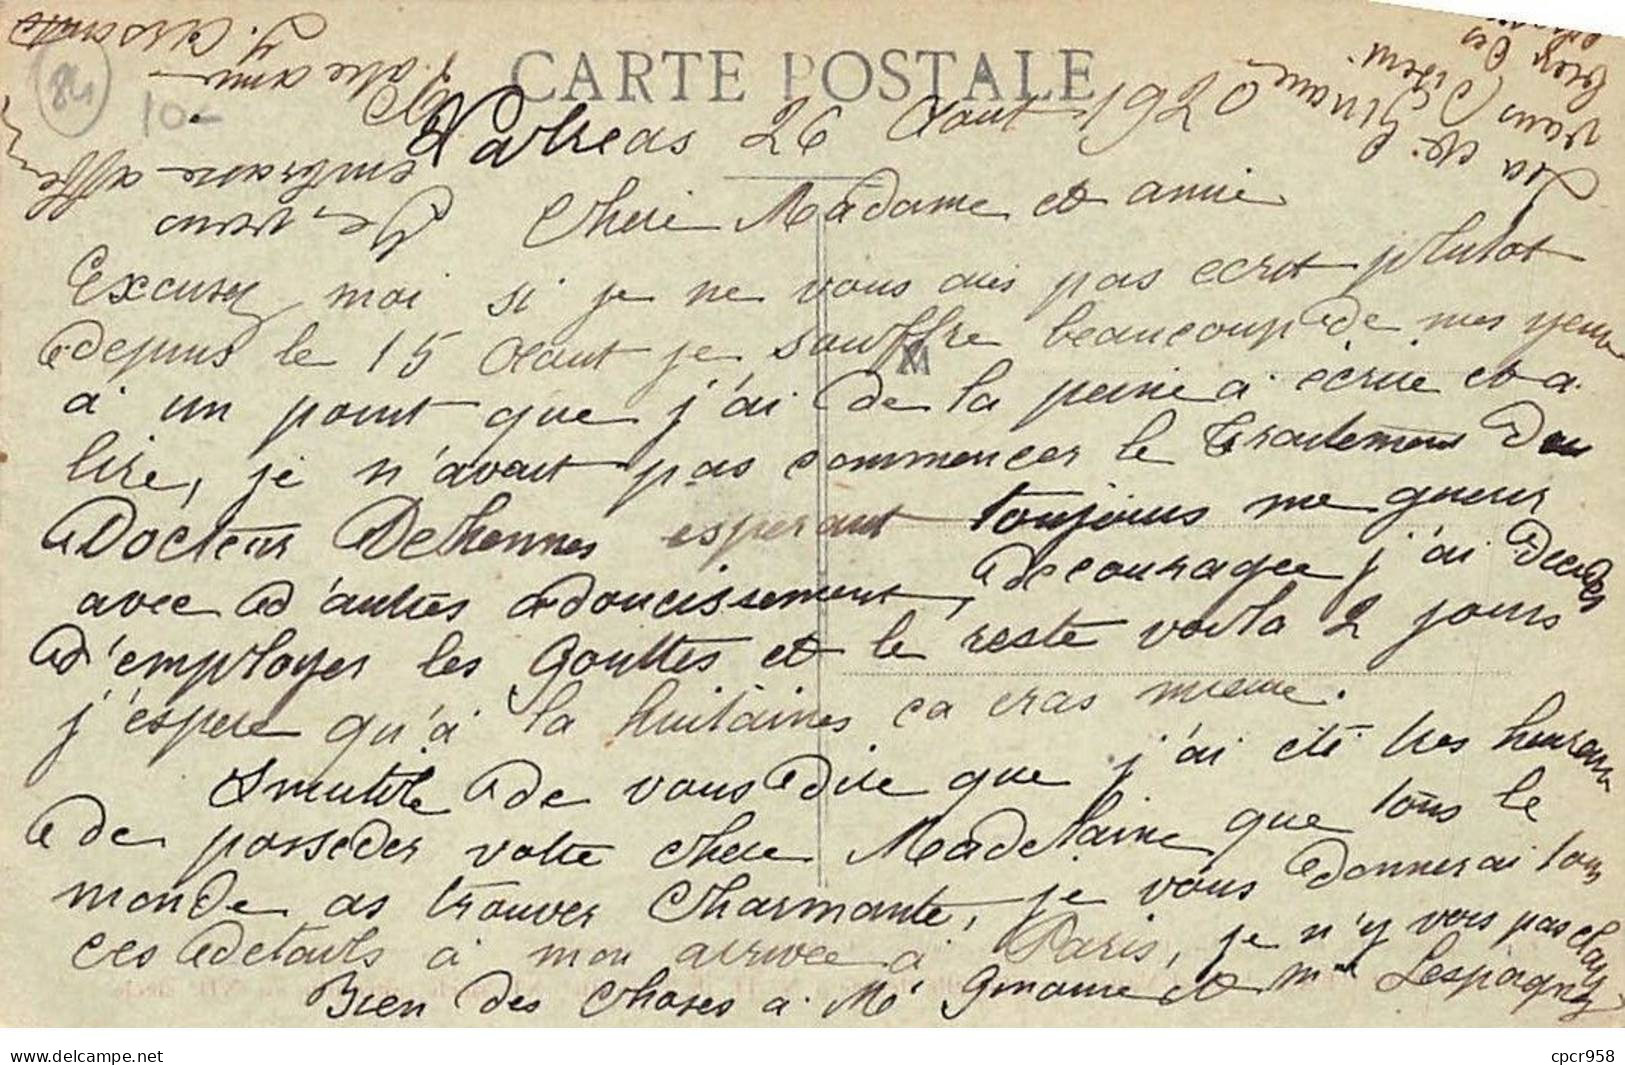 CARTE POSTALE
84
10-
Valreas 26 Aout 1920
Cheri Madame et amie
Excusez moi si je ne vous ais pas ecrit plutot
depuis le 15 Aout je souffre beaucoup de mes yeux
à un point que j'ai de la peine à écrire et a
lire, je n'avait pas commencer le traitement du
Docteur Dehennes esperant toujours me guerir
avec d'autres adoucissement, decouragee j'ai decidez
d'employer les gouttes et le reste voila 2 jours
j'espere qu'à la huitaines ca eras mieux.
Inutile de vous dire que j'ai été tres heureuse
de posseder votre chere Madelaine que tous le
monde as trouver Charmante, je vous donnerai tous
ces details à mon arrivee à Paris, je n'y vois pas clair
Bien des choses a Mr Gmame et mme Lespagnez
Je vous
embrasse affe
Votre amie